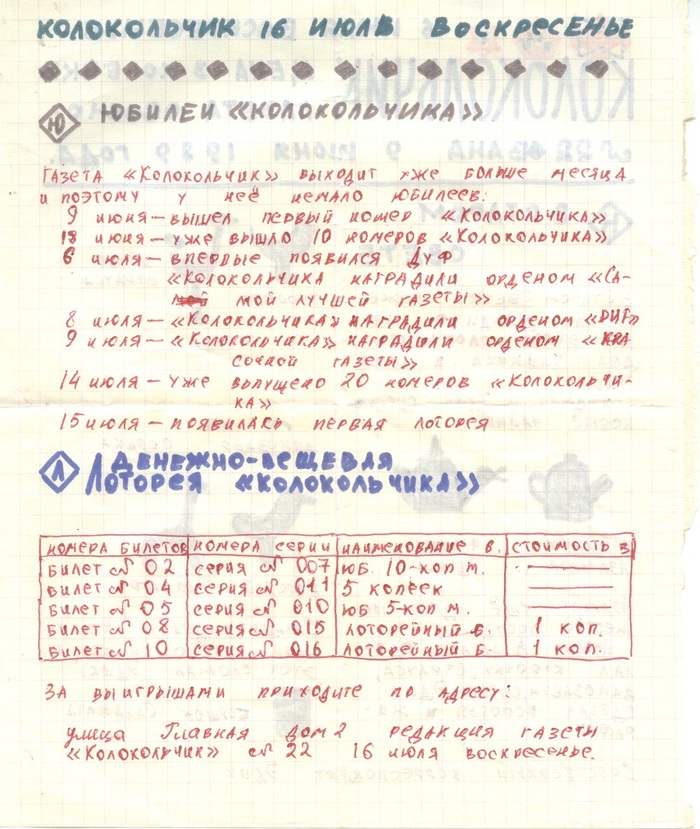 КОЛОКОЛЬЧИК 16 ИЮЛЯ ВОСКРЕСЕНЬЕ
Ю ЮБИЛЕИ «КОЛОКОЛЬЧИКА»
ГАЗЕТА «КОЛОКОЛЬЧИК» ВЫХОДИТ УЖЕ БОЛЬШЕ МЕСЯЦА
И ПОЭТОМУ У НЕЁ НЕМАЛО ЮБИЛЕЕВ:
9 ИЮНЯ — ВЫШЕЛ ПЕРВЫЙ НОМЕР «КОЛОКОЛЬЧИКА»
18 ИЮНЯ — УЖЕ ВЫШЛО 10 НОМЕРОВ «КОЛОКОЛЬЧИКА»
6 ИЮЛЯ — ВПЕРВЫЕ ПОЯВИЛСЯ ДУФ
«КОЛОКОЛЬЧИКА НАГРАДИЛИ ОРДЕНОМ «СА-
МОЙ ЛУЧШЕЙ ГАЗЕТЫ»
8 ИЮЛЯ — «КОЛОКОЛЬЧИКА» НАГРАДИЛИ ОРДЕНОМ
9 ИЮЛЯ — «КОЛОКОЛЬЧИКА» НАГРАДИЛИ ОРДЕНОМ «КРА
СОЧНОЙ ГАЗЕТЫ»
14 ИЮЛЯ — УЖЕ ВЫПУЩЕНО 20 НОМЕРОВ «КОЛОКОЛЬЧИ-
КА»
15 ИЮЛЯ — ПОЯВИЛАСЬ ПЕРВАЯ ЛОТОРЕЯ
Л ДЕНЕЖНО-ВЕЩЕВАЯ
ЛОТОРЕЯ «КОЛОКОЛЬЧИКА»
НОМЕРА БИЛЕТОВ НОМЕРА СЕРИИ НАИМЕНОВАНИЕ В. СТОИМОСТЬ В
БИЛЕТ № 02 СЕРИЯ № 007 ЮБ. 10-КОП М. —
БИЛЕТ № 04 СЕРИЯ № 011 5 КОПЕЕК —
БИЛЕТ № 05 СЕРИЯ № 010 ЮБ 5-КОП М. —
БИЛЕТ № 08 СЕРИЯ № 015 ЛОТОРЕЙНЫЙ Б. 1 КОП.
БИЛЕТ № 10 СЕРИЯ № 016 ЛОТОРЕЙНЫЙ Б. 1 КОП.
ЗА ВЫИГРЫШАМИ ПРИХОДИТЕ ПО АДРЕСУ:
УЛИЦА ГЛАВНАЯ ДОМ 2 РЕДАКЦИЯ ГАЗЕТЫ
«КОЛОКОЛЬЧИК» № 22 16 ИЮЛЯ ВОСКРЕСЕНЬЕ.